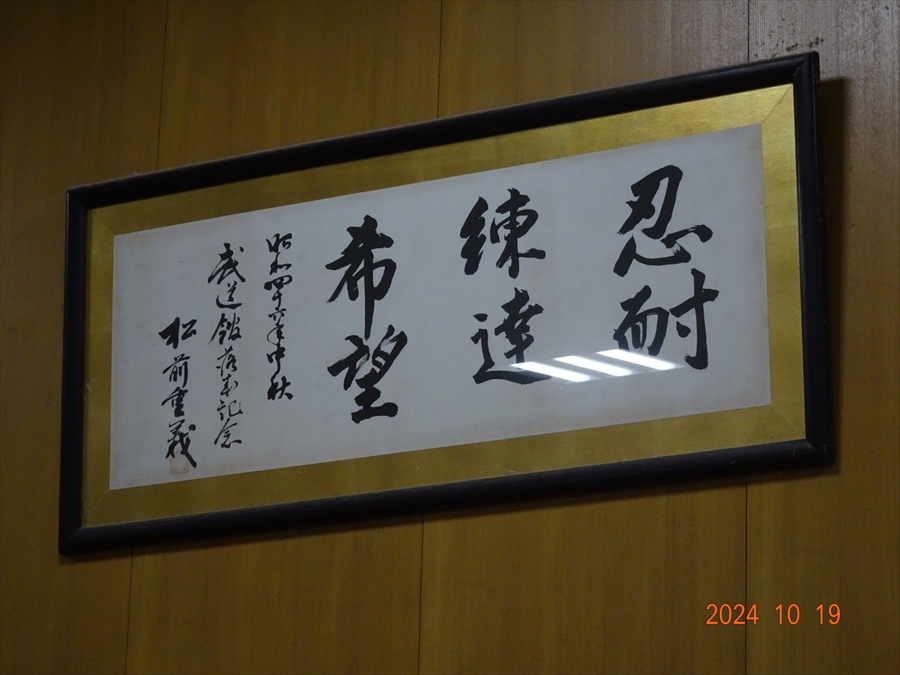 忍耐
練達
希望
昭和四十六年中秋
武道館落成記念
松前重義
2024 10 19